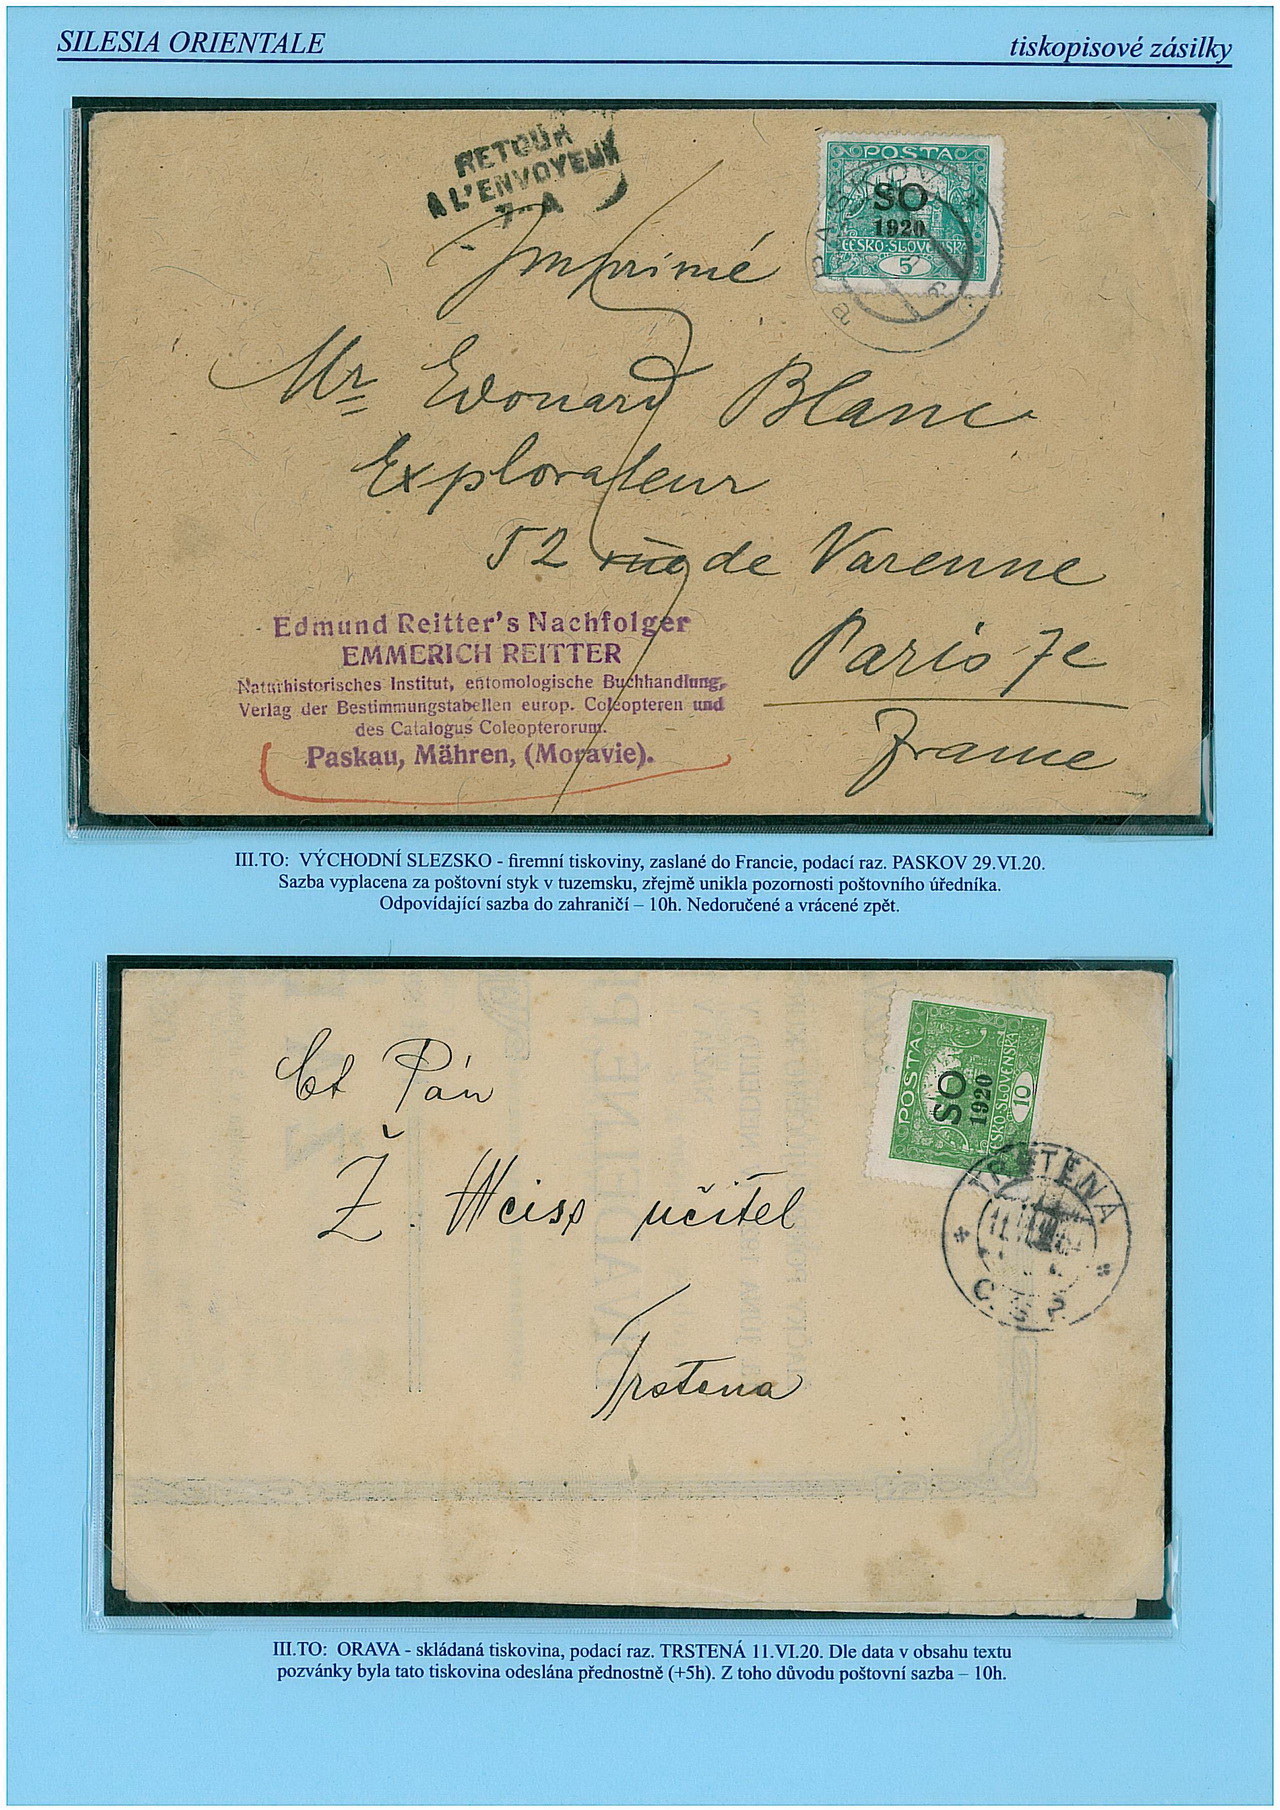 SILESIA ORIENTALE
tiskopisové zásilky
RETOUR
A L'ENVOYEUR
POSTA
SO
1920
ČESKO-SLOVENSKÁ
5
PASKOV
a
Imprimé
Mr Edouard Blanc
Explorateur
52 rue de Varenne
Paris 7e
France
Edmund Reitter's Nachfolger
EMMERICH REITTER
Naturhistorisches Institut, entomologische Buchhandlung,
Verlag der Bestimmungstabellen europ. Coleopteren und
des Catalogus Coleopterorum.
Paskau, Mähren, (Moravie).
III.TO: VÝCHODNÍ SLEZSKO - firemní tiskoviny, zaslané do Francie, podací raz. PASKOV 29.VI.20.
Sazba vyplacena za poštovní styk v tuzemsku, zřejmě unikla pozornosti poštovního úředníka.
Odpovídající sazba do zahraničí – 10h. Nedoručené a vrácené zpět.
POSTA
SO
1920
ČESKO-SLOVENSKÁ
10
TRSTENÁ
Č.S.P.
Ct Pán
Ž. Weiss učitel
Trstena
III.TO: ORAVA - skládaná tiskovina, podací raz. TRSTENÁ 11.VI.20. Dle data v obsahu textu
pozvánky byla tato tiskovina odeslána přednostně (+5h). Z toho důvodu poštovní sazba – 10h.